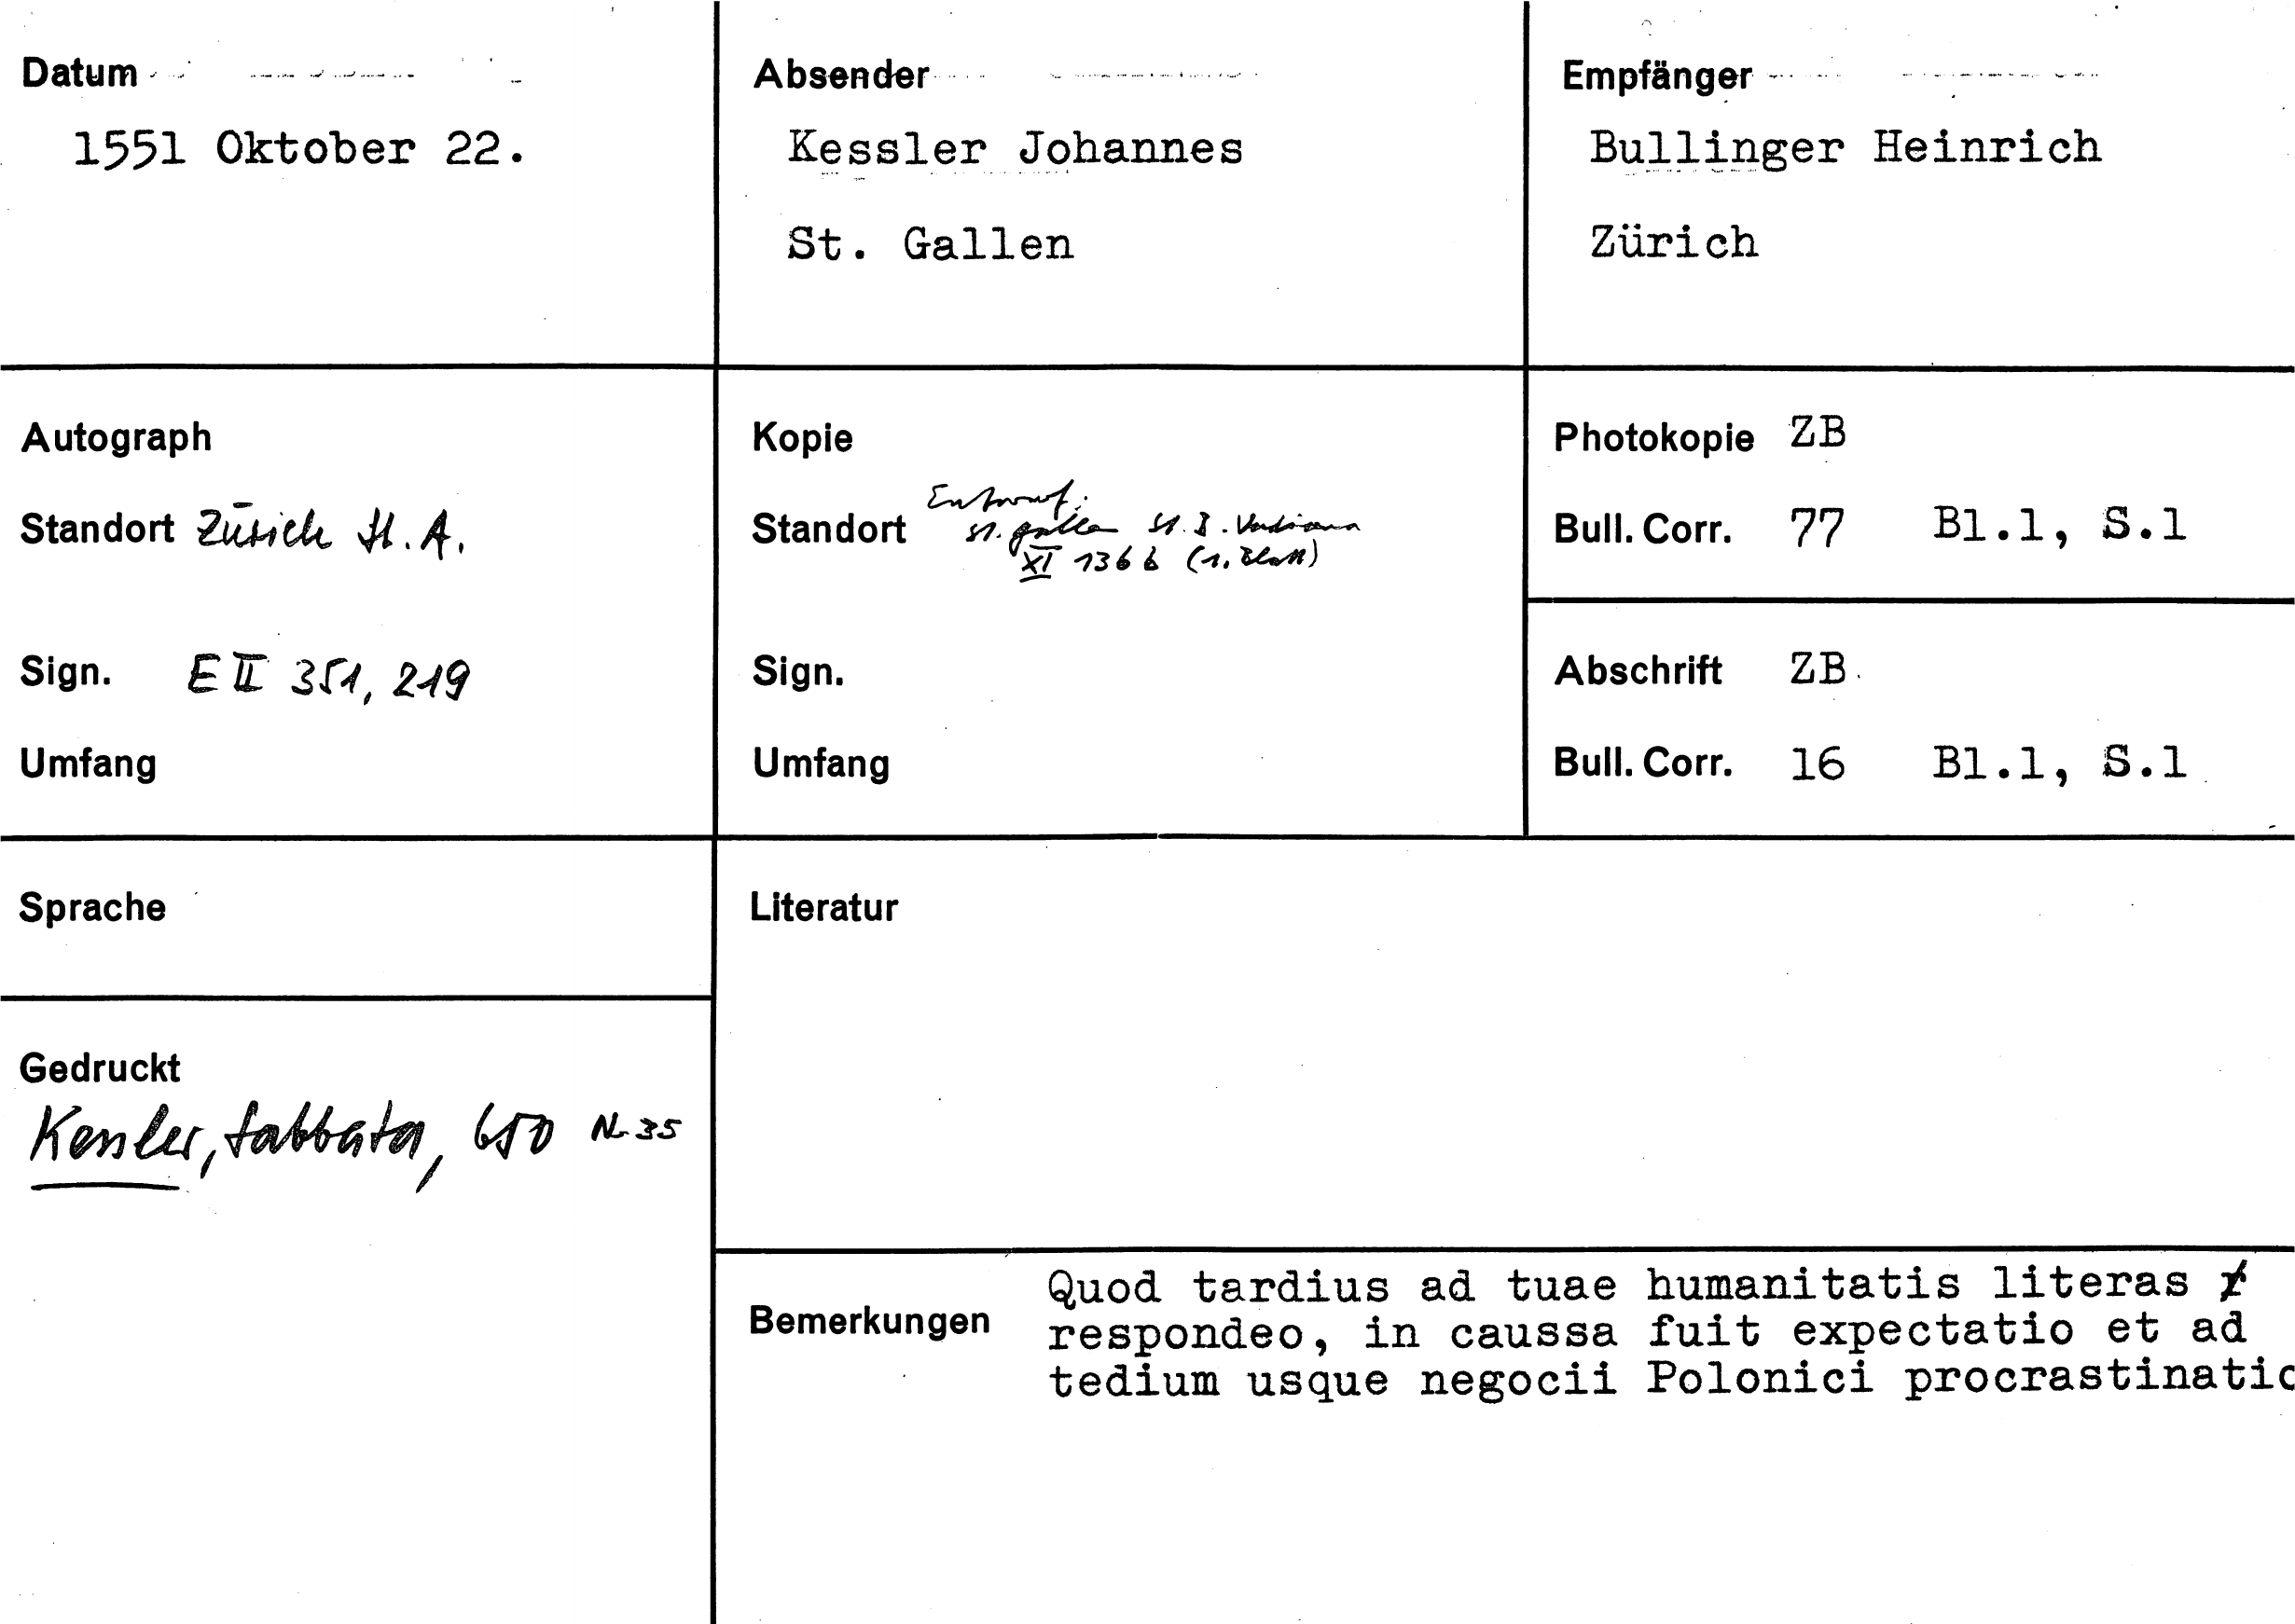 Datum
1551 Oktober 22.
Absender
Kessler Johannes
St. Gallen
Empfänger
Bullinger Heinrich
Zürich
Autograph
Standort Zürich St. A.
Sign. E II 351, 219
Umfang
Kopie
Entwurf:
Standort St. Gallen St. B. Vadiana
XI 136 b (1. Blatt)
Sign.
Umfang
Photokopie ZB
Bull. Corr. 77 Bl.1, S.1
Abschrift ZB
Bull. Corr. 16 Bl.1, S.1
Sprache
Gedruckt
Kessler, Sabbata, 650 Nr. 35
Literatur
Bemerkungen
Quod tardius ad tuae humanitatis literas
respondeo, in caussa fuit expectatio et ad
tedium usque negocii Polonici procrastinatio